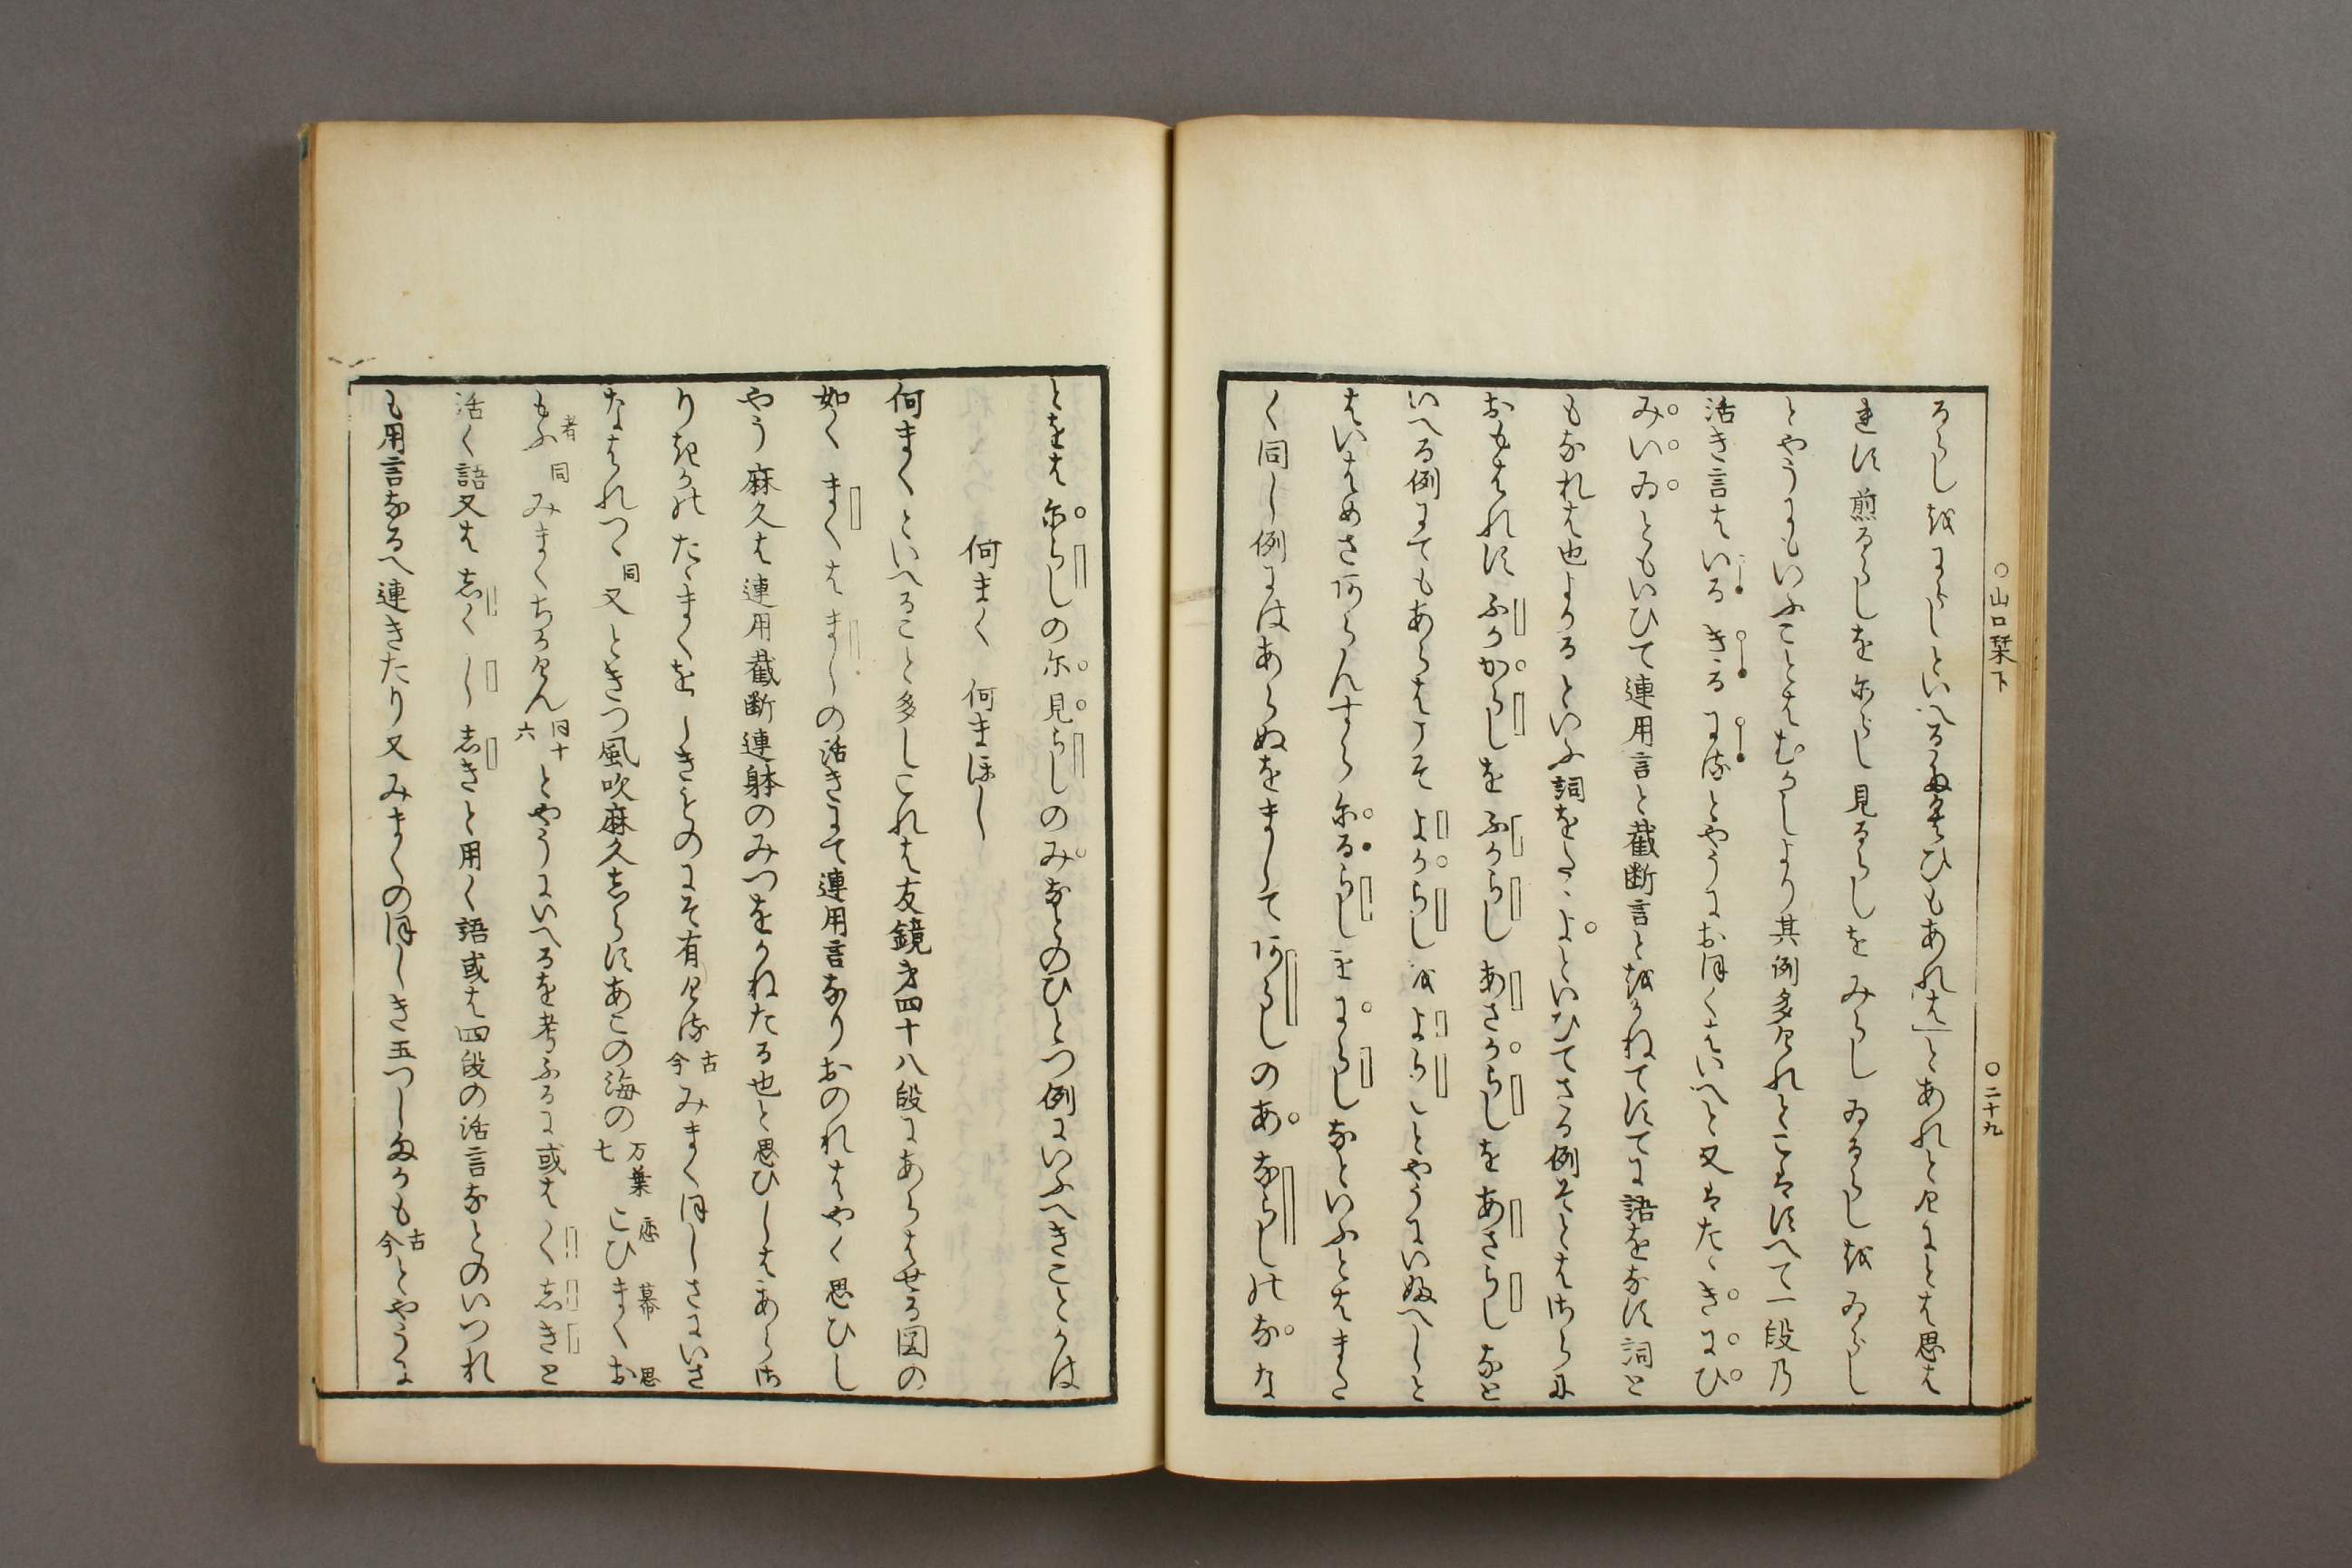 ○山口栞下　○二十九
るらし哉にらしといへるたくひもあれはとあれと凡にとは思は
れす煎るらしを煎らし見るらしをみらしゐるらし哉ゐらし
とやうにもいふことはむかしより其例多けれとこはすへて一段乃
活き言はいるきるにるとやうにおほくはいへと又はたゝきにひ
みいゐともいひて連用言と截断言と哉かねてすてに語をなす詞と
もなれは也よかるといふ詞をたゝよといひてさる例そとはさらに
おもはれすふかからしをふからしあさからしをあさらしなと
いへる例にてもあらはこそよからし哉よらしとやうにいぬへしと
はいはめさあらんすら尓るらしを尓らしなといふとはまた
く同し例にはあらぬをましてあらしのあならしのなな
とをは尓らしの尓見らしのみなとのひとつ例にいふへきことかは
何まく　何まほし
何まくといへること多しこれは友鏡才四十八段にあらはせる図の
如くまくはましの活きにて連用言なりおのれはやく思ひし
やう麻久は連用截断連躰のみつをかねたる也と思ひしはあらす
りけりたゝまくをしきをのにそ有ける古今みまくほしさにいさ
なはれつゝ同又ときつ風吹麻久志らすあこの海の万葉七こひ恋まく幕お思
もふ者同みまくちかけん同十六とやうにいへるを考ふるに或はくしきと
活く語又はしくしゝきと用く語或は四段の活言なとのいつれ
も用言なるへ連きたり又みまくのほしき玉つしまかも古今とやうに